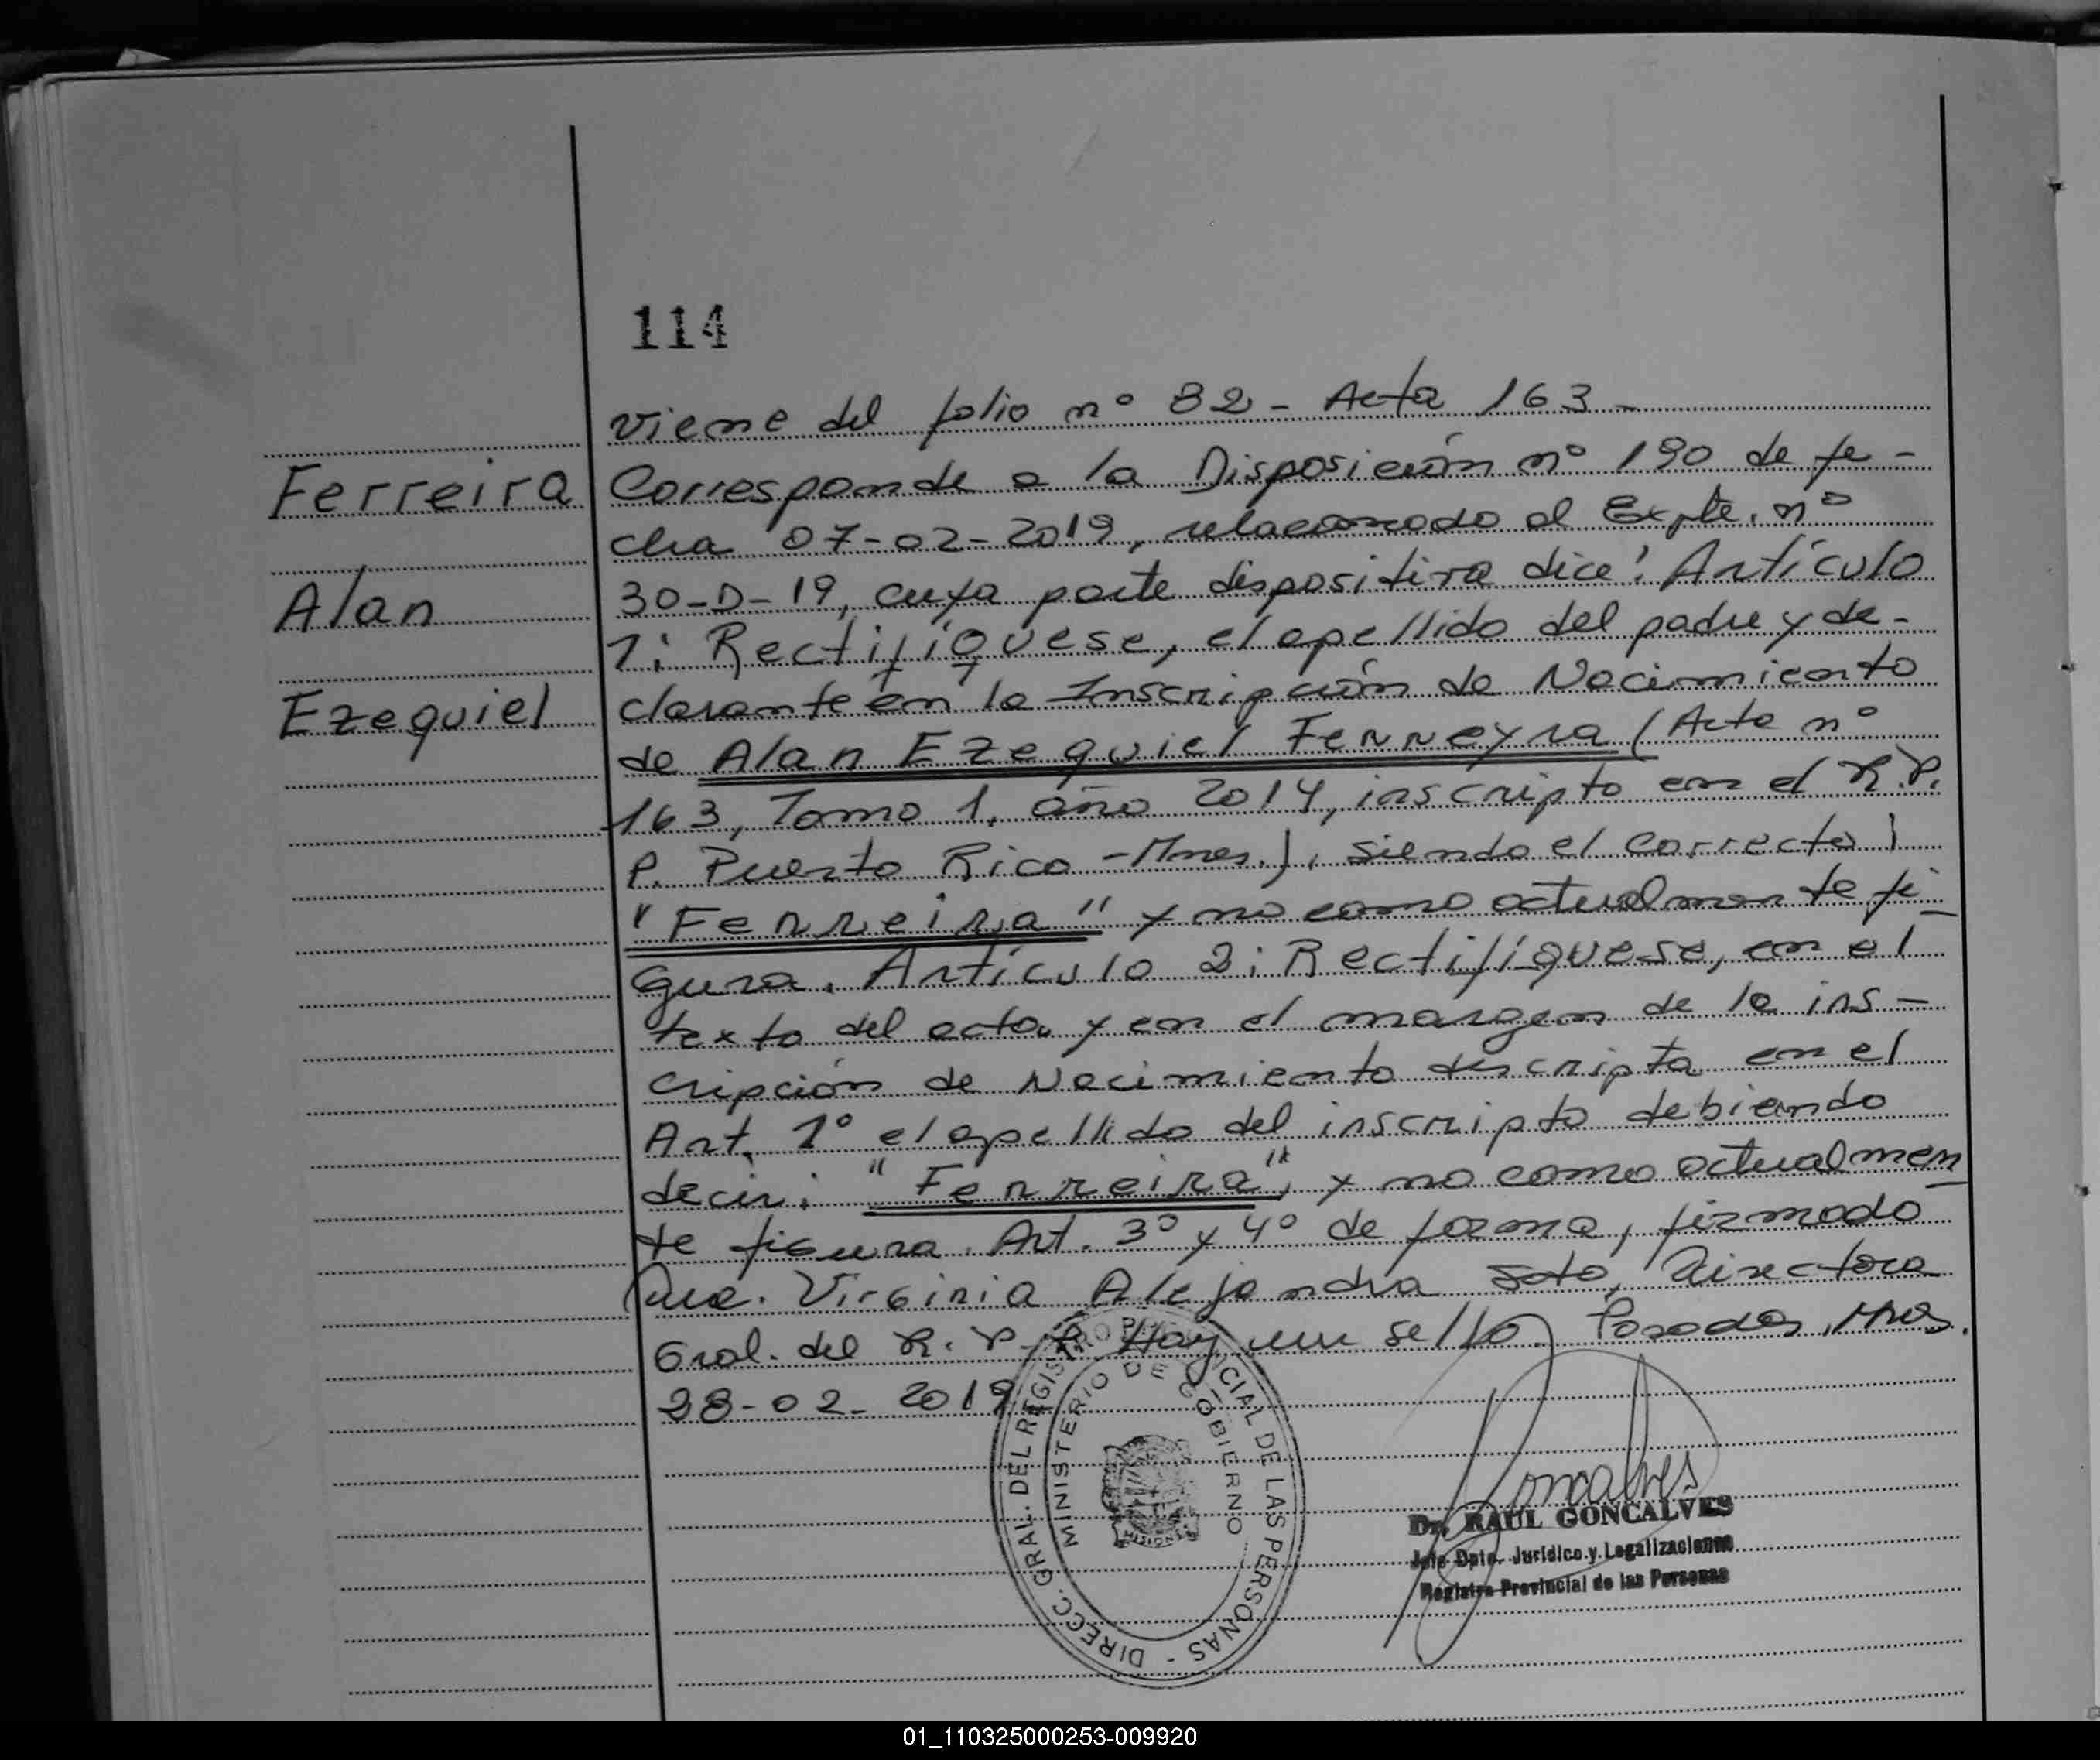 114
viene del folio nº 82 - Acta 163 -
Ferreira
Corresponde a la Disposición nº 190 de fe-
cha 07-02-2019, relacionado al Expte. nº
Alan
30-D-19, cuya parte dispositiva dice: Artículo
1: Rectifíquese, el apellido del padre y de-
Ezequiel
clarante en la Inscripción de Nacimiento
de Alan Ezequiel Ferreyra (Acta nº
163, Tomo 1, año 2014, inscripto en el R.P.
P. Puerto Rico - Mnes.), siendo el correcto:
"Ferreira" y no como actualmente fi-
gura. Artículo 2: Rectifíquese, en el
texto del acta y en el margen de la ins-
cripción de Nacimiento descripta en el
Art. 1º el apellido del inscripto debiendo
decir: "Ferreira", y no como actualmen
te figura. Art. 3º y 4º de forma, firmado
Virginia Alejandra Soto, Directora
Gral. del R.P.P. Hay un sello. Posadas, Mnes.
28-02-2019
DIRECC. GRAL. DEL REGISTRO PROVINCIAL DE LAS PERSONAS -
MINISTERIO DE GOBIERNO
MISIONES
Goncalves
Dr. RAUL GONCALVES
Jefe Dpto. Jurídico y Legalizaciones
Registro Provincial de las Personas
01_110325000253-009920